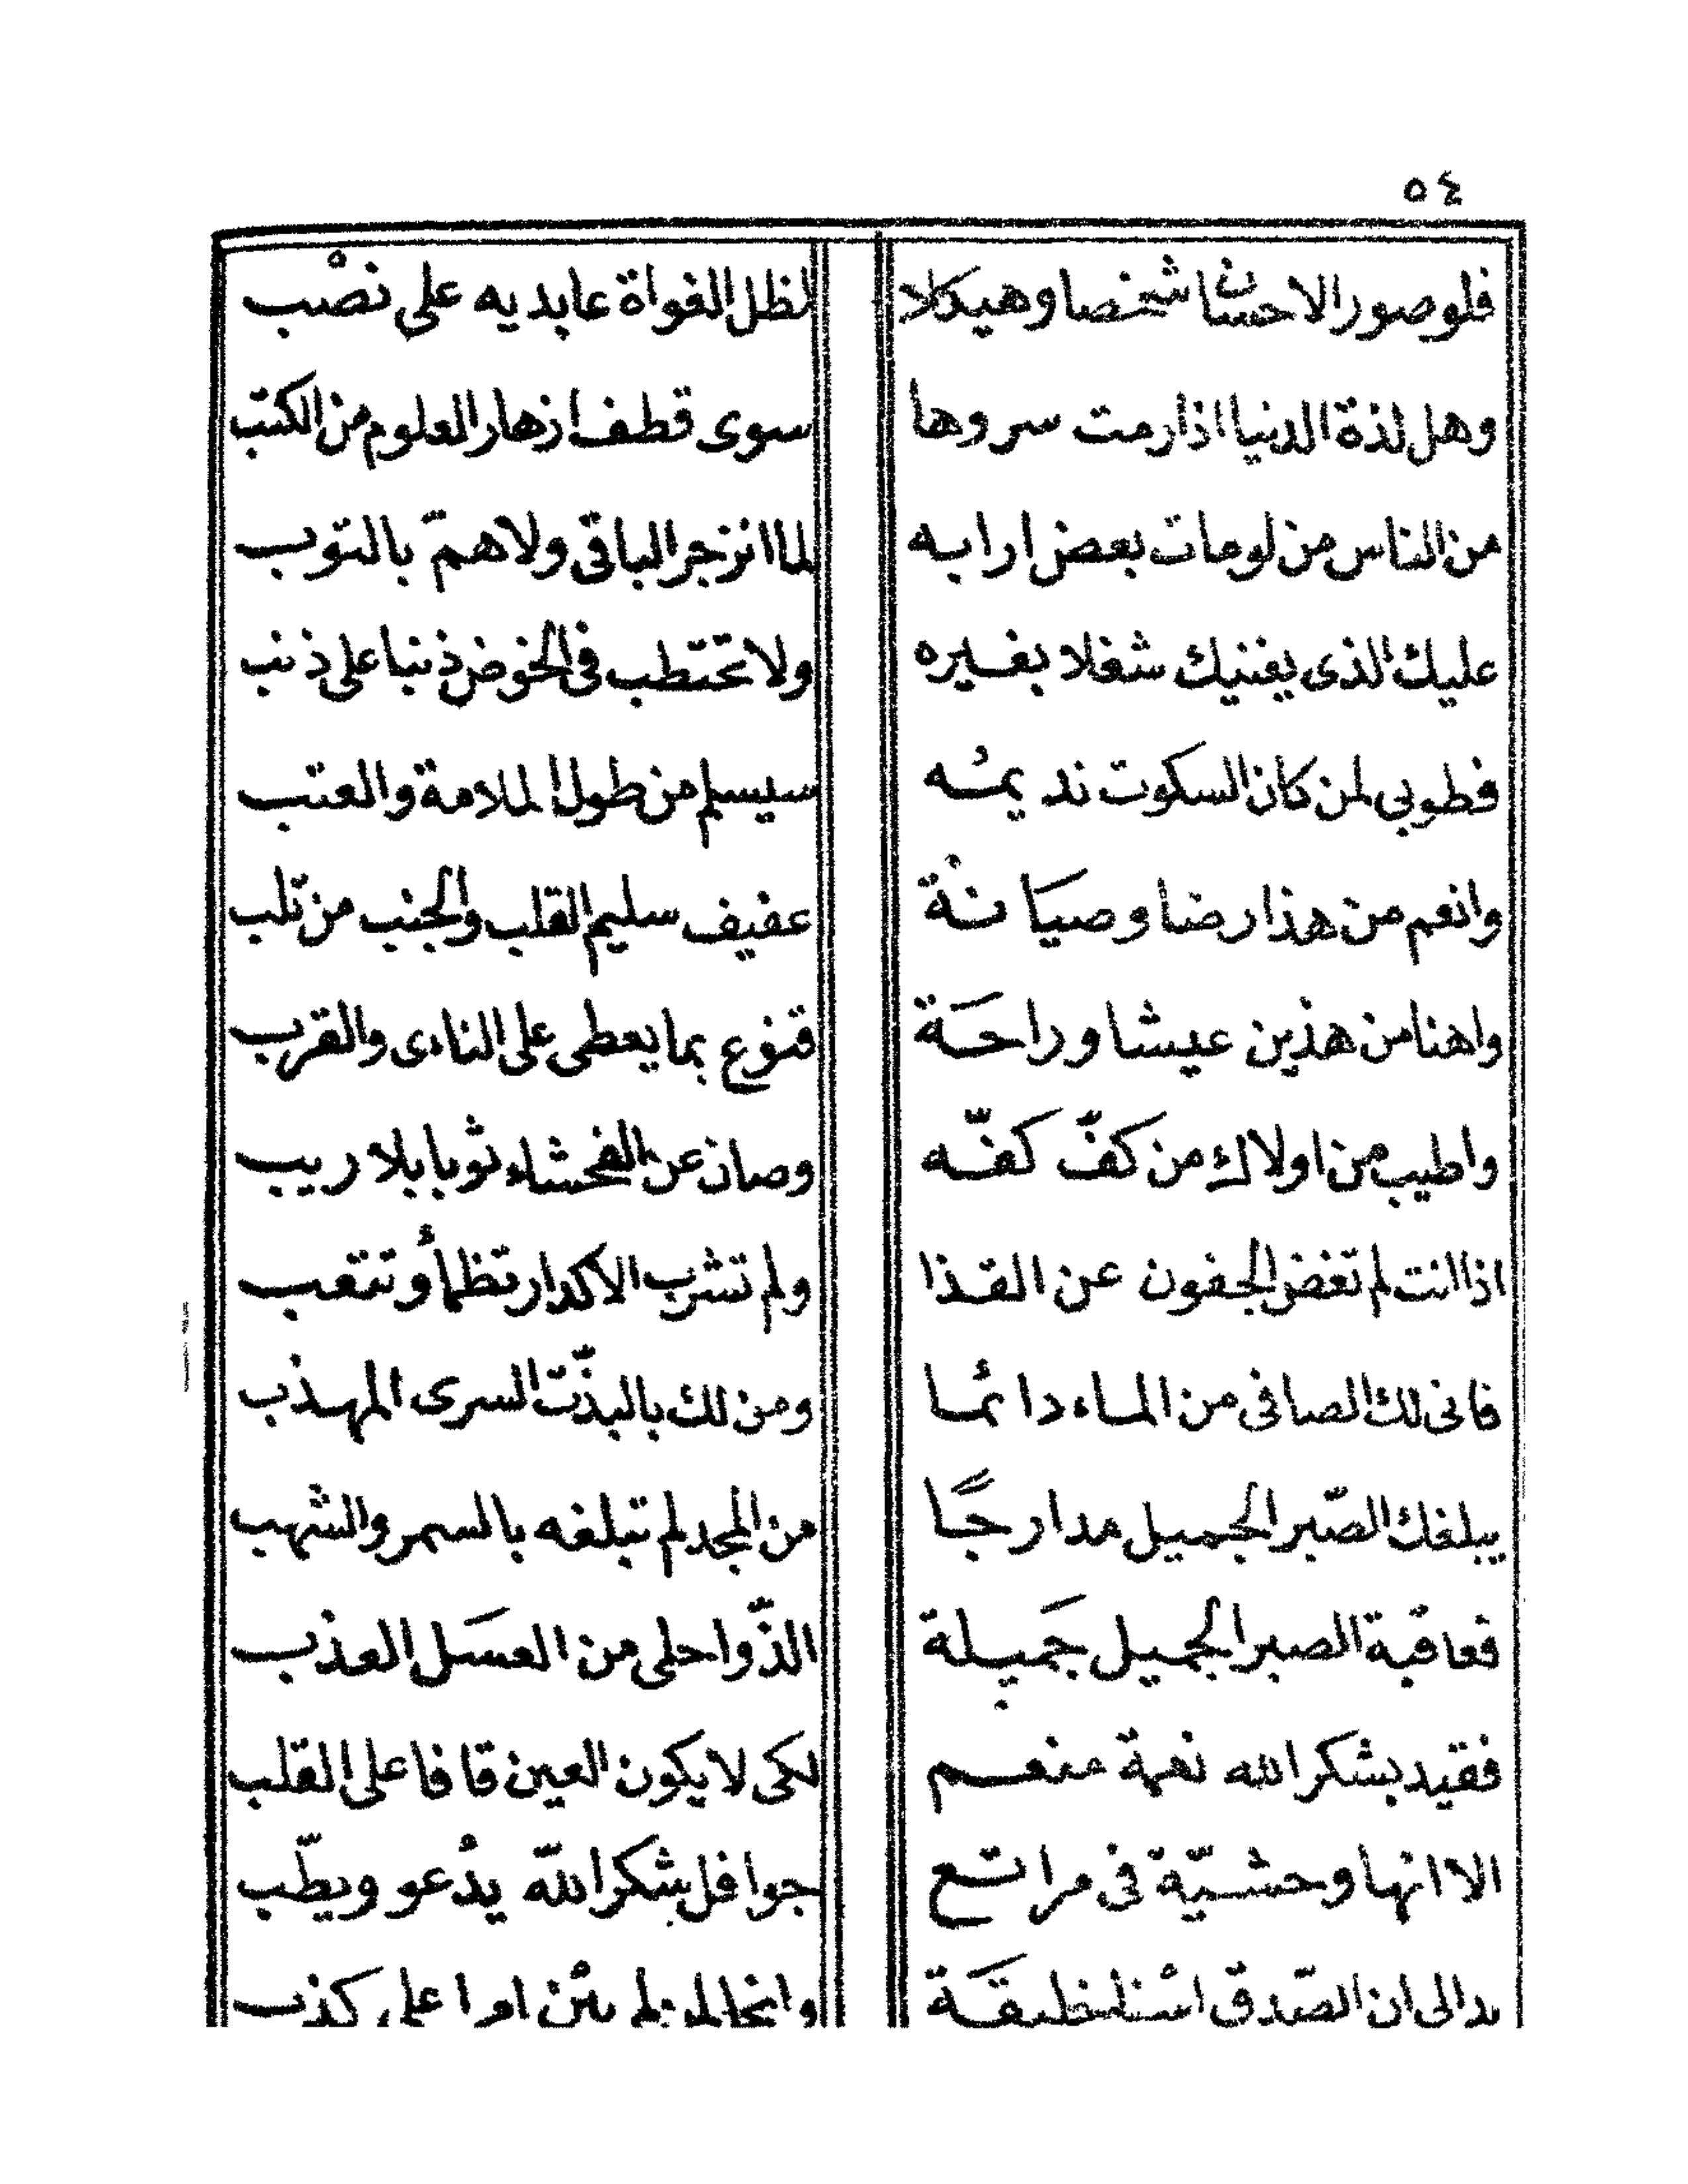 ٥٤
فلو صور الاحسان شخصا وهيكلا لظل الغواة عابديه على نصب
وهل لذة الدنيا اذا رمت سروها سوى قطف ازهار العلوم من الكتب
من الناس من لومات بعض ارابه لما انزجر الباقى ولا همّ بالتوب
عليك الذى يغنيك شغلا بغيره ولا تحتطب فى الخوض ذنبا على ذنب
فطوبى لمن كان السكوت نديمه سيسلم من طول الملامة والعتب
وانعم من هذا رضا وصيانة عفيف سليم القلب والجنب من ثلب
واهنا من هذين عيشا وراحة قنوع بما يعطى على الناءى والقرب
واطيب من اولاك من كفّ كفّه وصان عن الفحشاء ثوبا بلا ريب
اذا انت لم تغض الجفون عن القذا ولم تشرب الاكدار تظمأ وتتعب
فانى لك الصافى من الماء دائما ومن لك بالبذّت السرى المهذب
يبلغك الصّبر الجميل مدارجًا من المجد لم تبلغه بالسمر والشهب
فعاقبة الصبر الجميل جَميلة الذّ واحلى من العسَل العذب
فقيد بشكر الله نعمة منعم لكى لا يكون العين قافا على القلب
الا انها وحشيّة فى مراتع جوافل بشكر الله يدْعو ويطّب
بدا لى ان الصّدق اسنا خليقَة كذب